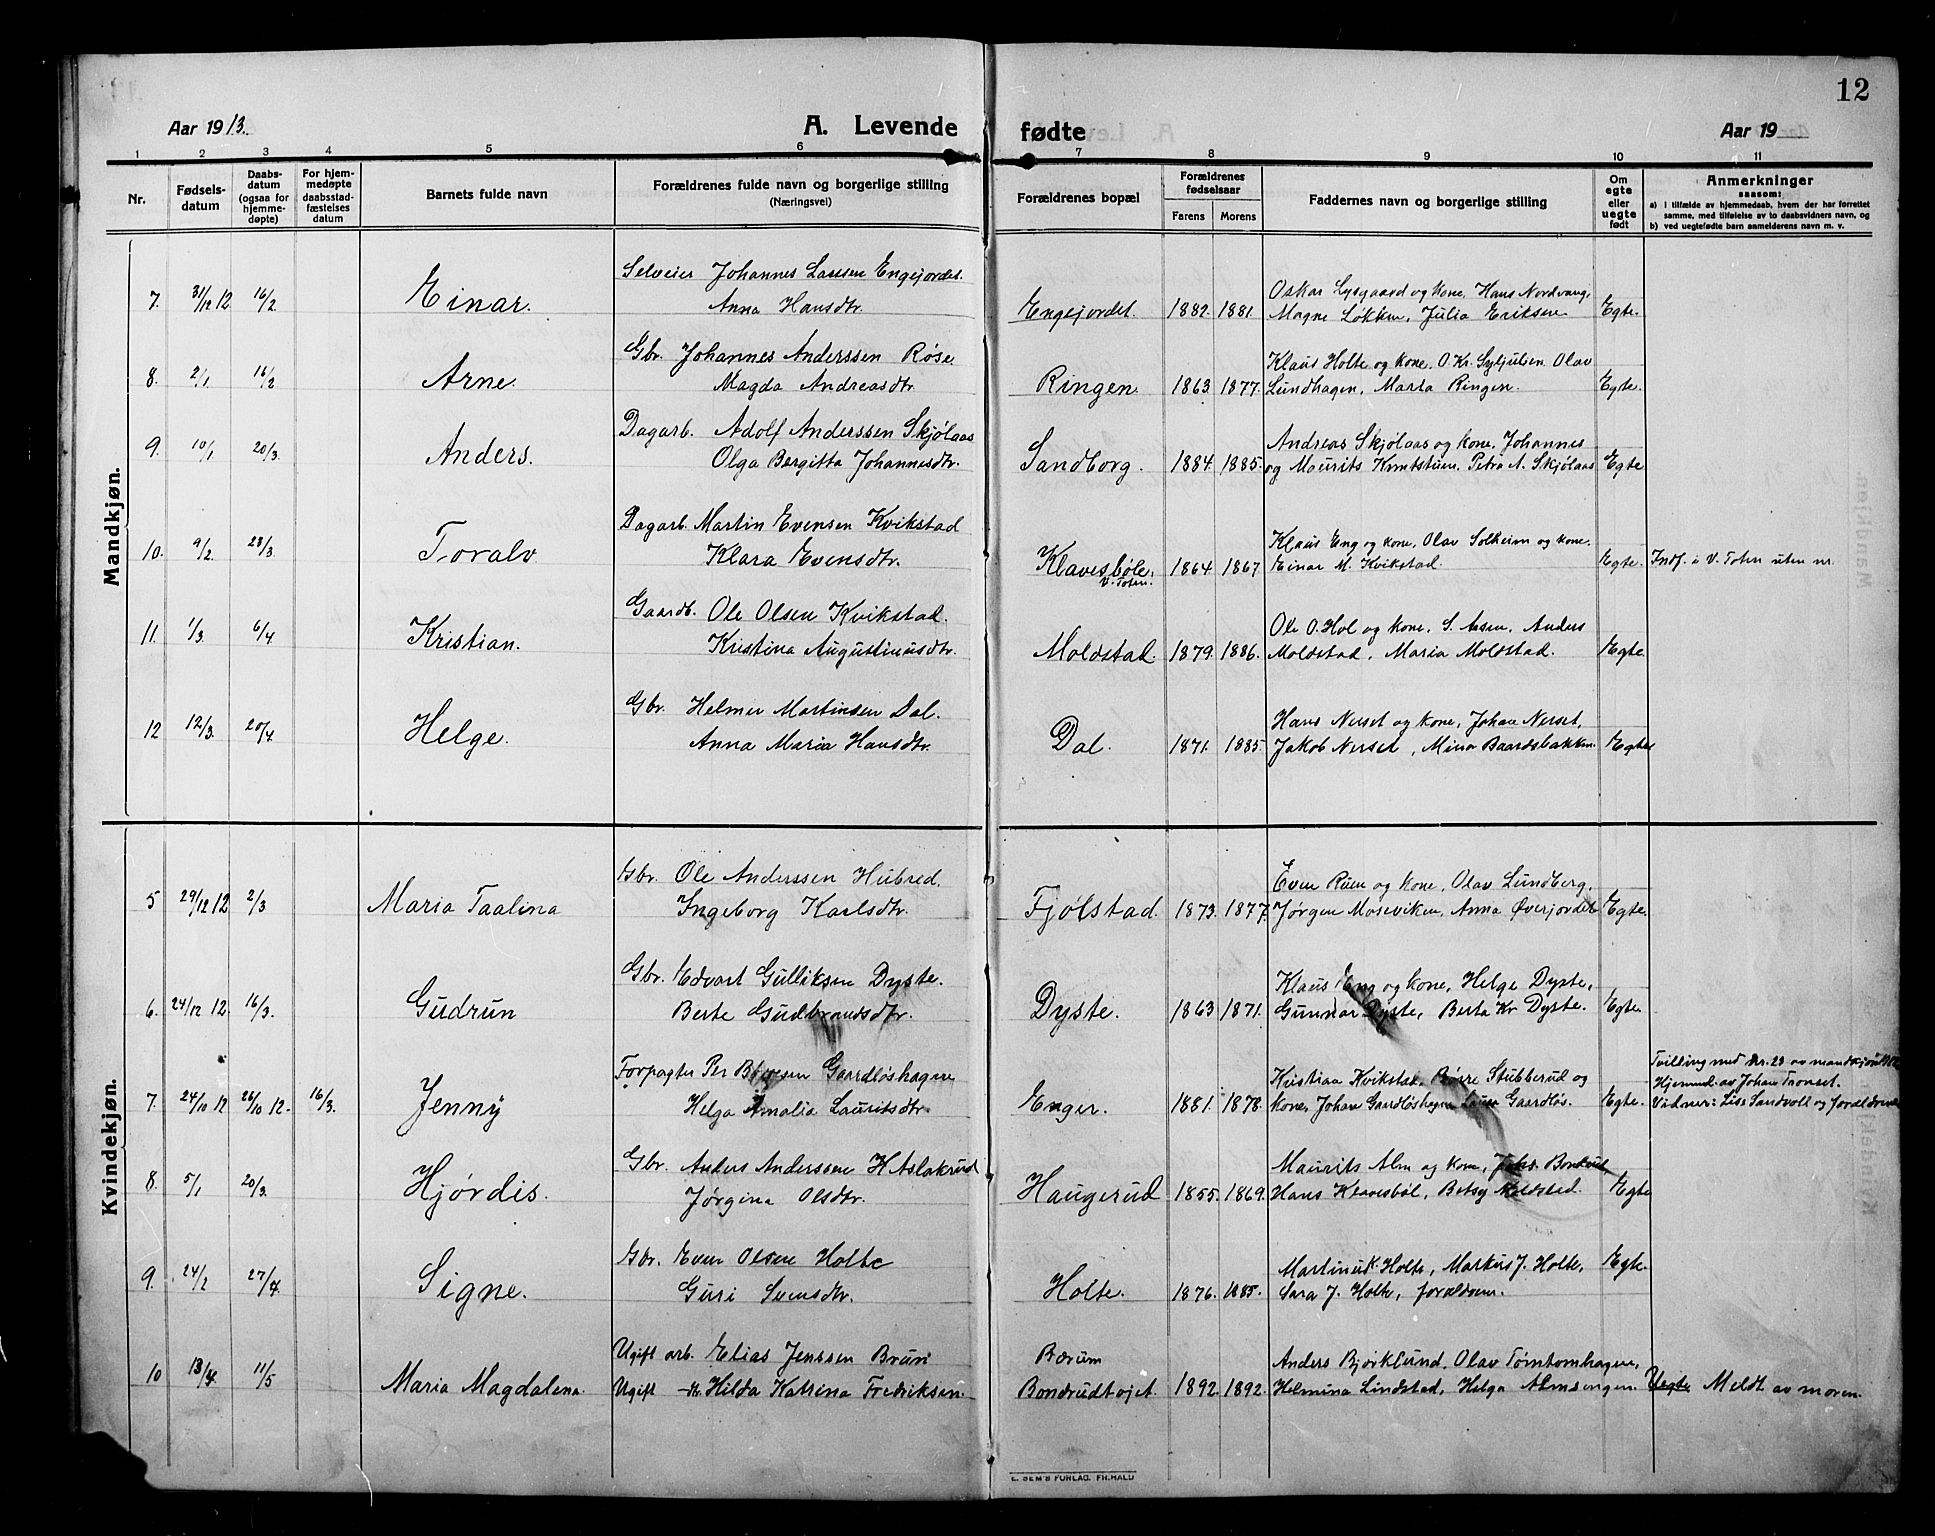 12
Aar 1913.
A. Levende
fødte
Aar 19
1 2 3 4 5 6 7 8 9 10 11
Nr.
Fødsels-
datum
Daabs-
datum
(ogsaa for
hjemme-
døpte)
For hjem-
medøpte
daabsstad-
fæstelses
datum
Barnets fulde navn
Forældrenes fulde navn og borgerlige stilling
(Næringsvei)
Forældrenes bopæl
Forældrenes
fødselsaar
Farens Morens
Faddernes navn og borgerlige stilling
Om
egte
eller
uegte
født
Anmerkninger
saasom:
a) i tilfælde av hjemmedaab, hvem der har forrettet
samme, med tilføielse av to daabsvidners navn, og
b) ved uegtefødte barn anmelderens navn m. v.
Mandkjøn.
Selveier Johannes Larsen Engejordet.
Oskar Lysgaard og kone, Hans Nordvang,
7. 31/12 12 16/2 Einar. Anna Hansdtr. Engejordet. 1882. 1881. Magne Løkken, Julia Eriksen Egte.
Gbr. Johannes Anderssen Røse
Klaus Holte og kone, O. Kr. Syljulien Olav
8. 2/1 16/2 Arne. Magda Andreasdtr. Ringen. 1863 1877. Lundhagen, Marta Ringen. Egte.
Dagarb. Adolf Anderssen Skjølaas
Andreas Skjølaas og kone, Johannes
9. 10/1 20/3. Anders. Olga Bergitta Johannesdtr. Sandborg. 1884. 1885. og Maurits Knutstuen. Petra A. Skjølaas Egte
Dagarb. Martin Evensen Kvikstad
Klaus Eng og kone, Olav Solheim og kone.
10. 9/2. 23/3. Toralv Klara Evensdtr. Klavesbøle. 1864 1867 Einar M. Kvikstad. Egte. Indf. i V. Toten uten nr.
V. Toten.
Gaardb. Ole Olsen Kvikstad.
Ole O. Hol og kone, S. Aasen, Anders
11. 1/3. 6/4 Kristian. Kristina Augustinusdtr. Moldstad. 1879. 1886. Moldstad, Maria Moldstad. Egte.
Gbr. Helmer Martinsen Dal.
Hans Nerset og kone, Johan Nerset,
12 12/3. 20/4 Helge. Anna Maria Hansdtr. Dal. 1871. 1885. Jakob Nerset, Mina Baardsbakken. Egte
Kvindekjøn.
Gbr. Ole Anderssen Hubred.
Even Ruen og kone, Olav Lundberg.
5 29/12 12 2/3 Maria Taalina Ingeborg Karlsdtr. Fjølstad. 1873. 1877. Jørgen Moseviken, Anna Øverjordet Egte.
Gbr. Edvart Gulliksen Dyste.
Klaus Eng og kone, Helge Dyste,
6. 24/12 12. 16/3. Gudrun Berte Gudbrandsdtr. Dyste. 1863 1871. Gunnar Dyste, Berta Kr Dyste. Egte.
Forpagter Per Børresen Gaardløshagen
Kristian Kvikstad, Børre Stubberud og
Tvilling med nr. 23 av mandkjøn 1912
Hjemmed. av Johan Tronset.
7. 24/10 12 26/10 12. 16/3. Jenny Helga Amalia Lauritsdtr. Enger. 1881. 1878. kone, Johan Gaardløshagen Laura Gaardløs. Egte. Vidner: Lise Sandvoll og forældrene
Gbr. Anders Anderssen H. Aslakrud
Maurits Alm og kone, Johs. Bondrud
8. 5/1 20/3. Hjørdis. Jørgina Olsdtr. Haugerud 1855. 1869. Hans Klavesbøl, Betsy Moldstad. Egte
Gbr. Even Olsen Holte
Martinus K. Holte, Markus J. Holte,
9. 24/2 27/4. Signe. Guri Svensdtr. Holte. 1876. 1885. Sara J. Holte, forældrene. Egte.
Ugift arb. Elias Jenssen Bruri Bærum
Anders Bjørklund, Olav Tømtomhagen,
10 13/4. 11/5 Maria Magdalena. Ugift Hilda Katrina Fredriksen Bondrudtøjet. 1892. 1892. Helmina Lindstad, Helga Almsengen. Uegte Meldt av moren.
E. SEM'S FORLAG. FR.HALD